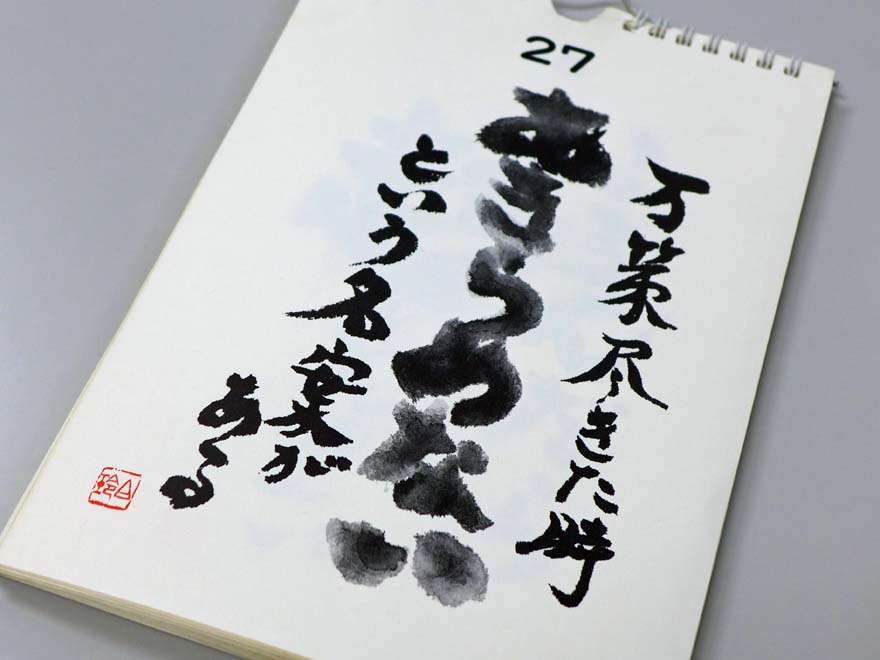 27
万策尽きた時
あきらめない
という名案が
ある